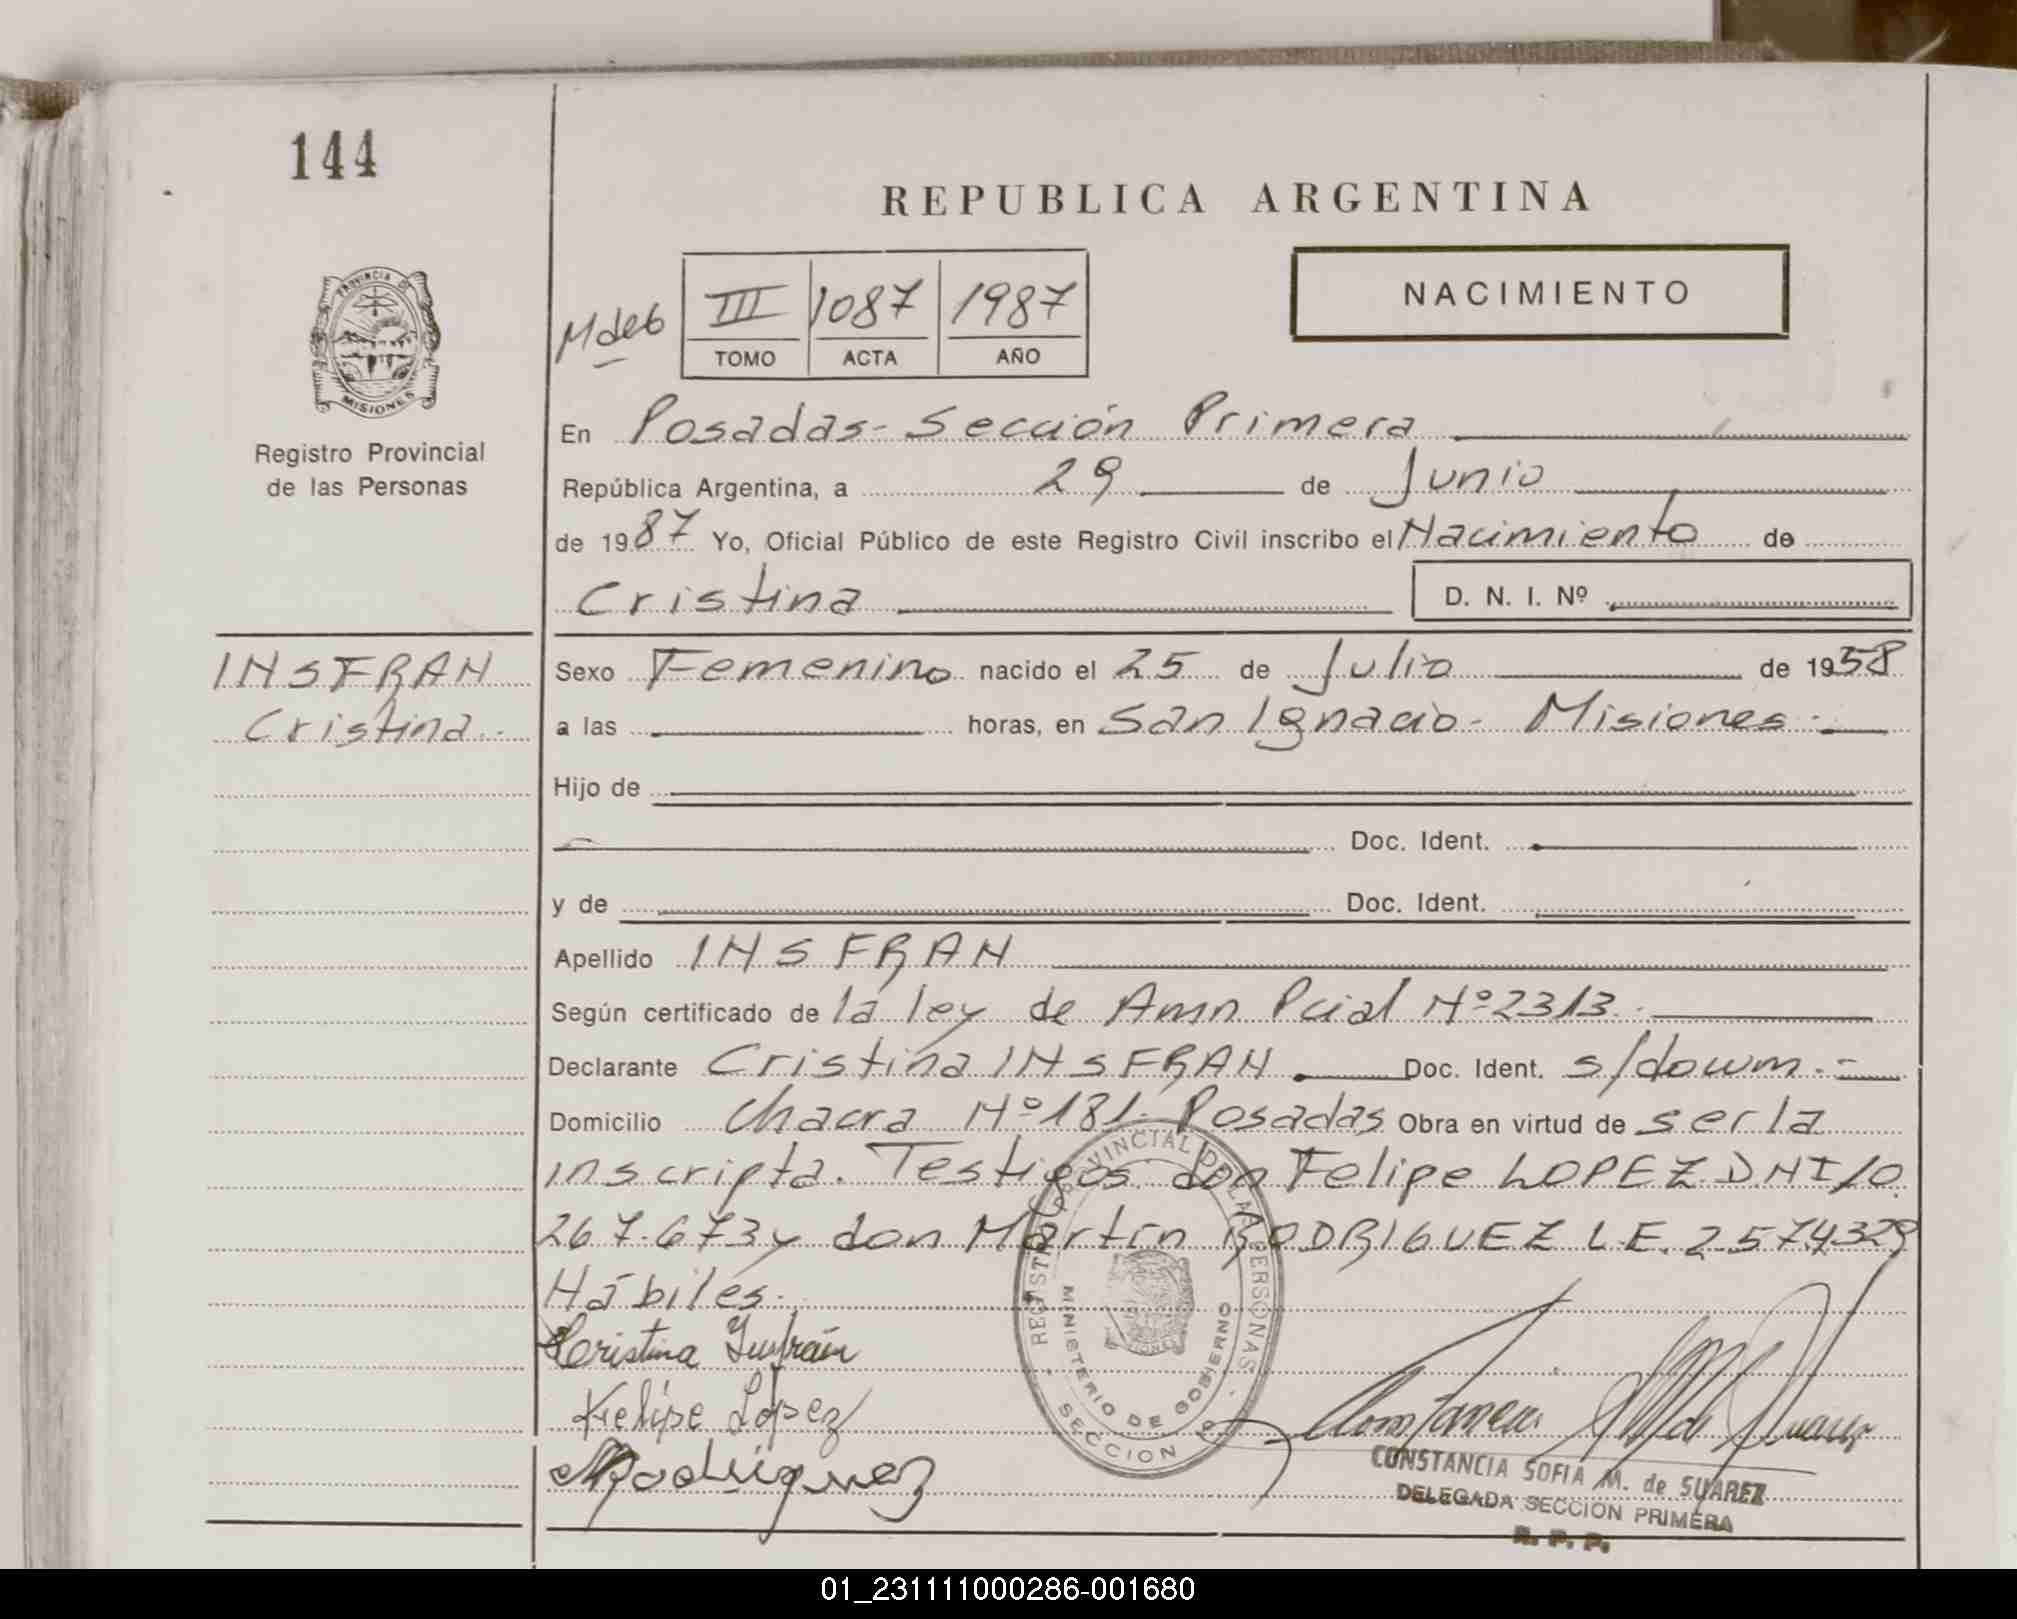 144
REPUBLICA ARGENTINA
PROVINCIA DE
MISIONES
Registro Provincial
de las Personas
III 1087 1987
TOMO ACTA AÑO
NACIMIENTO
En Posadas - Sección Primera
República Argentina, a 29 de Junio
de 1987 Yo, Oficial Público de este Registro Civil inscribo el Nacimiento de
Cristina D. N. I. Nº
INSFRAN
Cristina.
Sexo Femenino nacido el 25 de Julio de 1958
a las horas, en San Ignacio - Misiones.
Hijo de
Doc. Ident.
y de Doc. Ident.
Apellido INSFRAN
Según certificado de la ley de Amn Pcial Nº 2313.
Declarante Cristina INSFRAN. Doc. Ident. s/docum.
Domicilio Chacra Nº 181. Posadas Obra en virtud de ser la
inscripta. Testigos don Felipe LOPEZ DNI 10.
267.673 y don Martin RODRIGUEZ L.E. 2.574.329
Hábiles.
Cristina Insfrán
Felipe López
Rodriguez
REGISTRO PROVINCIAL DE LAS PERSONAS
MINISTERIO DE GOBIERNO
SECCION
CONSTANCIA SOFIA M. de SUAREZ
DELEGADA SECCION PRIMERA
R. P. P.
01_231111000286-001680